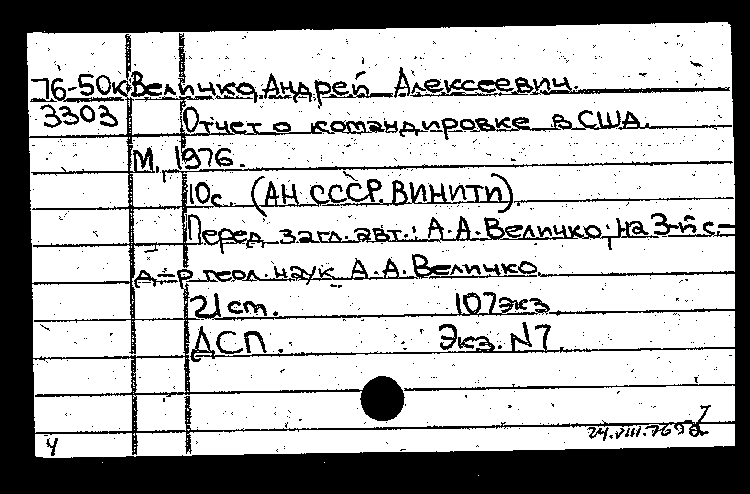 76-50к Величко, Андрей Алексеевич.
3303 Отчет о командировке в США.
М., 1976.
10с. (АН СССР. ВИНИТИ).
Перед загл. авт.: А.А. Величко; на 3-й с.-
д-р геол. наук А.А. Величко.
21 ст. 107 экз.
ДСП. Экз. N7.
4 24.VIII.76